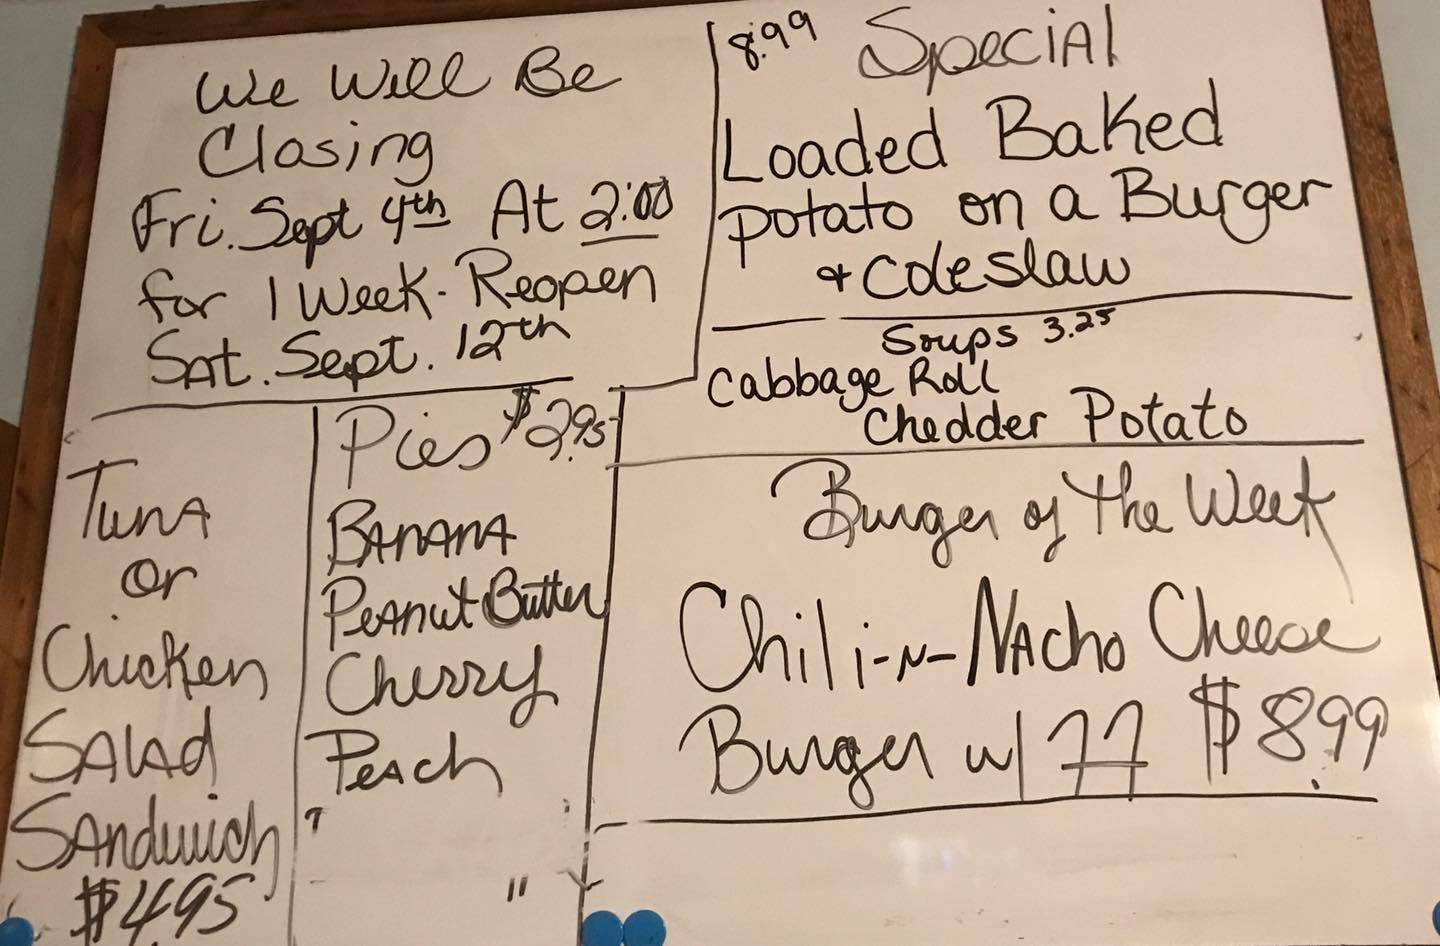 We Will Be
Closing
Fri. Sept 4th At 2:00
for 1 Week. Reopen
Sat. Sept. 12th
8.99 Special
Loaded Baked
potato on a Burger
+ Coleslaw
Soups 3.25
Cabbage Roll
Chedder Potato
Tuna
or
Chicken
Salad
Sandwich
$4.95
Pies $2.95
Banana
Peanut Butter
Cherry
Peach
Burger of The Week
Chili-N-Nacho Cheese
Burger w/ FF $8.99